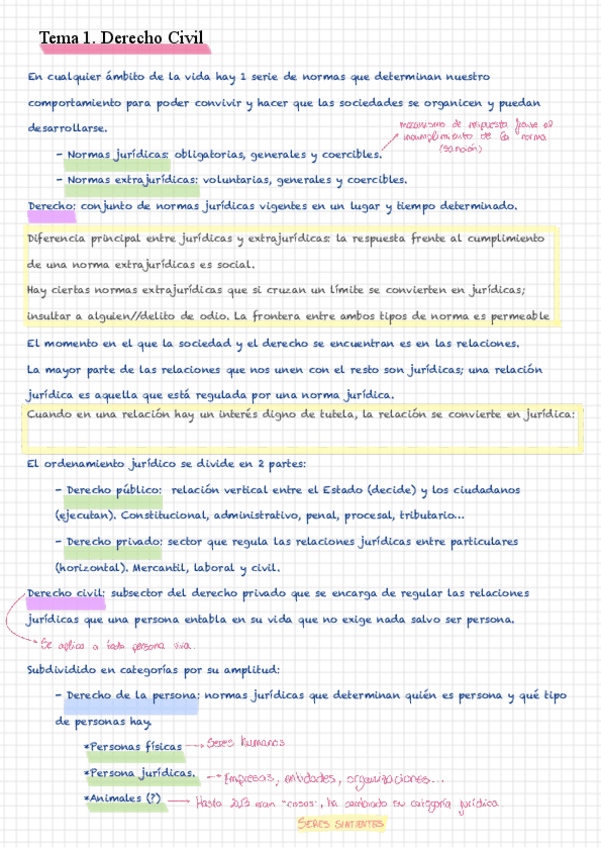 Tema 1. Derecho Civil
En cualquier ámbito de la vida hay 1 serie de normas que determinan nuestro
comportamiento para poder convivir y hacer que las sociedades se organicen y puedan
desarrollarse.
mecanismo de respuesta frente al
incumplimiento de la norma
(sanción)
- Normas jurídicas: obligatorias, generales y coercibles.
- Normas extrajurídicas: voluntarias, generales y coercibles.
Derecho: conjunto de normas jurídicas vigentes en un lugar y tiempo determinado.
Diferencia principal entre jurídicas y extrajurídicas: la respuesta frente al cumplimiento
de una norma extrajurídicas es social.
Hay ciertas normas extrajurídicas que si cruzan un límite se convierten en jurídicas;
insultar a alguien//delito de odio. La frontera entre ambos tipos de norma es permeable
El momento en el que la sociedad y el derecho se encuentran es en las relaciones.
La mayor parte de las relaciones que nos unen con el resto son jurídicas; una relación
jurídica es aquella que está regulada por una norma jurídica.
Cuando en una relación hay un interés digno de tutela, la relación se convierte en jurídica:
El ordenamiento jurídico se divide en 2 partes:
- Derecho público: relación vertical entre el Estado (decide) y los ciudadanos
(ejecutan). Constitucional, administrativo, penal, procesal, tributario...
- Derecho privado: sector que regula las relaciones jurídicas entre particulares
(horizontal). Mercantil, laboral y civil.
Derecho civil: subsector del derecho privado que se encarga de regular las relaciones
jurídicas que una persona entabla en su vida que no exige nada salvo ser persona.
Se aplica a toda persona viva.
Subdividido en categorías por su amplitud:
- Derecho de la persona: normas jurídicas que determinan quién es persona y qué tipo
de personas hay.
*Personas físicas → Seres humanos
*Persona jurídicas. → Empresas, entidades, organizaciones...
*Animales (?) → Hasta 2013 eran "cosas", ha cambiado su categoría jurídica
SERES SINTIENTES